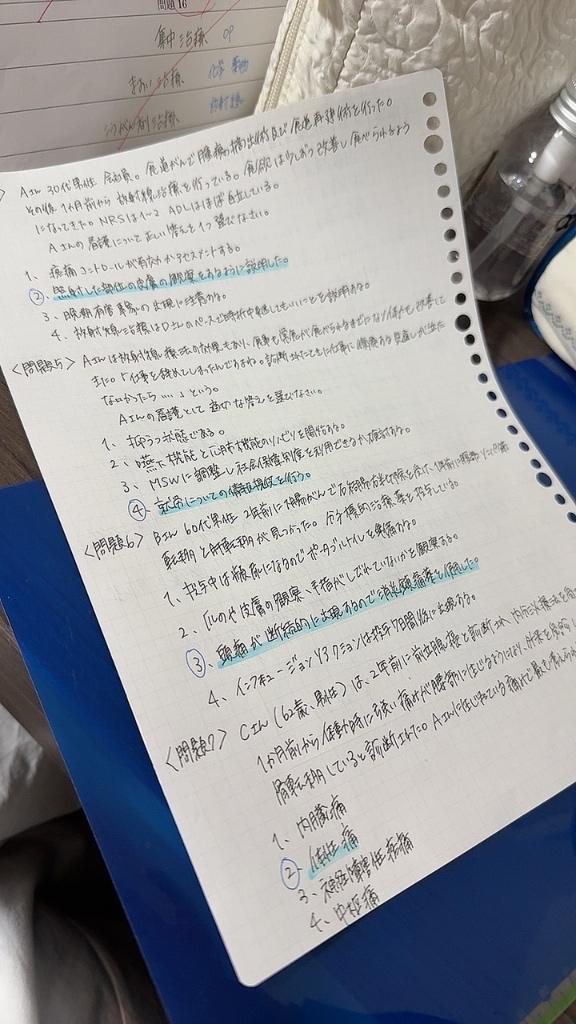 問題16
集中治療 OP
治療 化学
治療
Aさん 30代男性 会社員。食道がんで腫瘍の摘出術及び食道再建術を行った。
その後1ヶ月前から放射線治療を行っている。食欲は少しずつ改善し食べられるよう
になってきた。NRSは1〜2 ADLはほぼ自立している。
Aさんの看護について正しい答えを1つ選びなさい。
1、疼痛コントロールが有効かアセスメントする。
②、照射した部位の皮膚の観察をするように説明した。
3、晩期有害事象の出現に注意する。
4、放射線治療は自分のペースで時折中断してもいいことを説明する。
<問題5> Aさんは放射線療法の効果もあり、食事も常食が食べられるまでになり体力も改善して
きた。「仕事を辞めてしまったんですよね。診断されたときに仕事に
なかったら……」という。
Aさんの看護として適切な答えを選びなさい。
1、抑うつ状態である。
2、嚥下機能と心肺機能のリハビリを開始する。
3、MSWに調整し社会保障制度を利用できるか検討する。
④、就労についての情報提供を行う。
<問題6> Bさん 60代男性 2年前に大腸がんで右結腸切除を
転移と肝転移が見つかった。分子標的治療薬を投与している。
1、投与中は頻尿になるのでポータブルトイレを準備する。
2、爪や皮膚の観察、手指がしびれていないかを観察する。
③、頭痛が断続的に出現するので消炎鎮痛薬を使用した。
4、インフュージョンリアクションは投与7日間後に出現する。
<問題7> Cさん(62歳、男性)は、2年前に前立腺癌と診断され、内分泌療法を
1か月前から体動時に強い痛みが腰部に生じるようになり、外来を受診し、
骨転移していると診断された。Aさんに生じている痛みで最も考えられる
1、内臓痛
②、体性痛
3、神経障害性疼痛
4、中枢痛